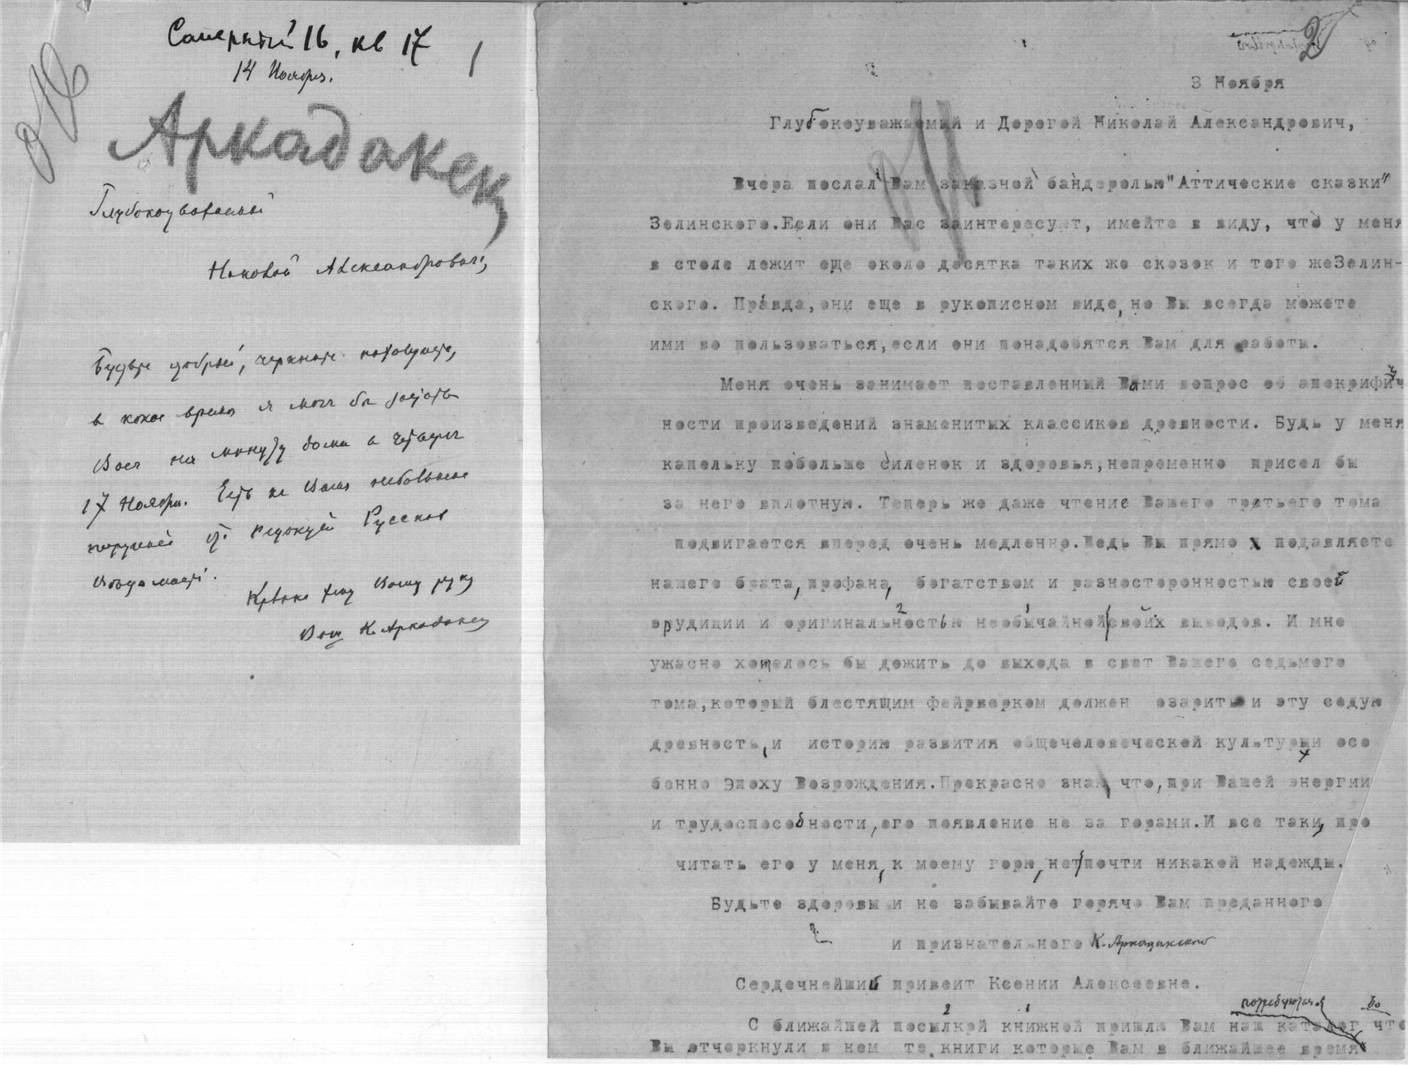 Саперный 16, кв 17
14 Ноября.
1
Аркадакск
Глубокоуважаемый
Николай Александрович,
Будьте добрый, черкните пожалуйста,
в какое время я мог бы застать
Вас на минуту дома в четверг
17 Ноября. Есть к Вам небольшое
поручение от редакции Русских
Ведомостей.
Крепко жму Вашу руку
Ваш К. Аркадакск
2
3 Ноября
Глубокоуважаемый и Дорогой Николай Александрович,
Вчера послал Вам заказной бандеролью "Аттические сказки"
Зелинского.Если они Вас заинтересуют, имейте в виду, что у меня
в столе лежит еще около десятка таких же сказок и того жеЗелин-
ского. Правда,они еще в рукописном виде, но Вы всегда можете
ими во пользоваться,если они понадобятся Вам для работы.
Меня очень занимает поставленный Вами вопрос об апокрифич
ности произведений знаменитых классиков древности. Будь у меня
капельку побольше силенок и здоровья,непременно присел бы
за него вплотную. Теперь же даже чтение Вашего третьего тома
подвигается вперед очень медленно.Ведь Вы прямо подавляете
нашего брата, профана, богатством и разносторонностью своей
эрудиции и оригинальностью необычайной своих выводов. И мне
ужасно хотелось бы дожить до выхода в свет Вашего седьмого
тома,который блестящим фейрверком должен озарить и эту седую
древность, и историю развития общечеловеческой культуры и осо
бенно Эпоху Возрождения.Прекрасно знаю, что,при Вашей энергии
и трудоспособности, его появление не за горами.И все таки, про
читать его у меня, к моему горю, нет почти никакой надежды.
Будьте здоровы и не забывайте горячо Вам преданного
и признательного К. Аркадакского
Сердечнейший привеит Ксении Алексеевне.
потребуются бо
С ближайшей посылкой книжной пришлю Вам наш каталог что
Вы отчеркнули в нем те книги которые Вам в ближайшее время